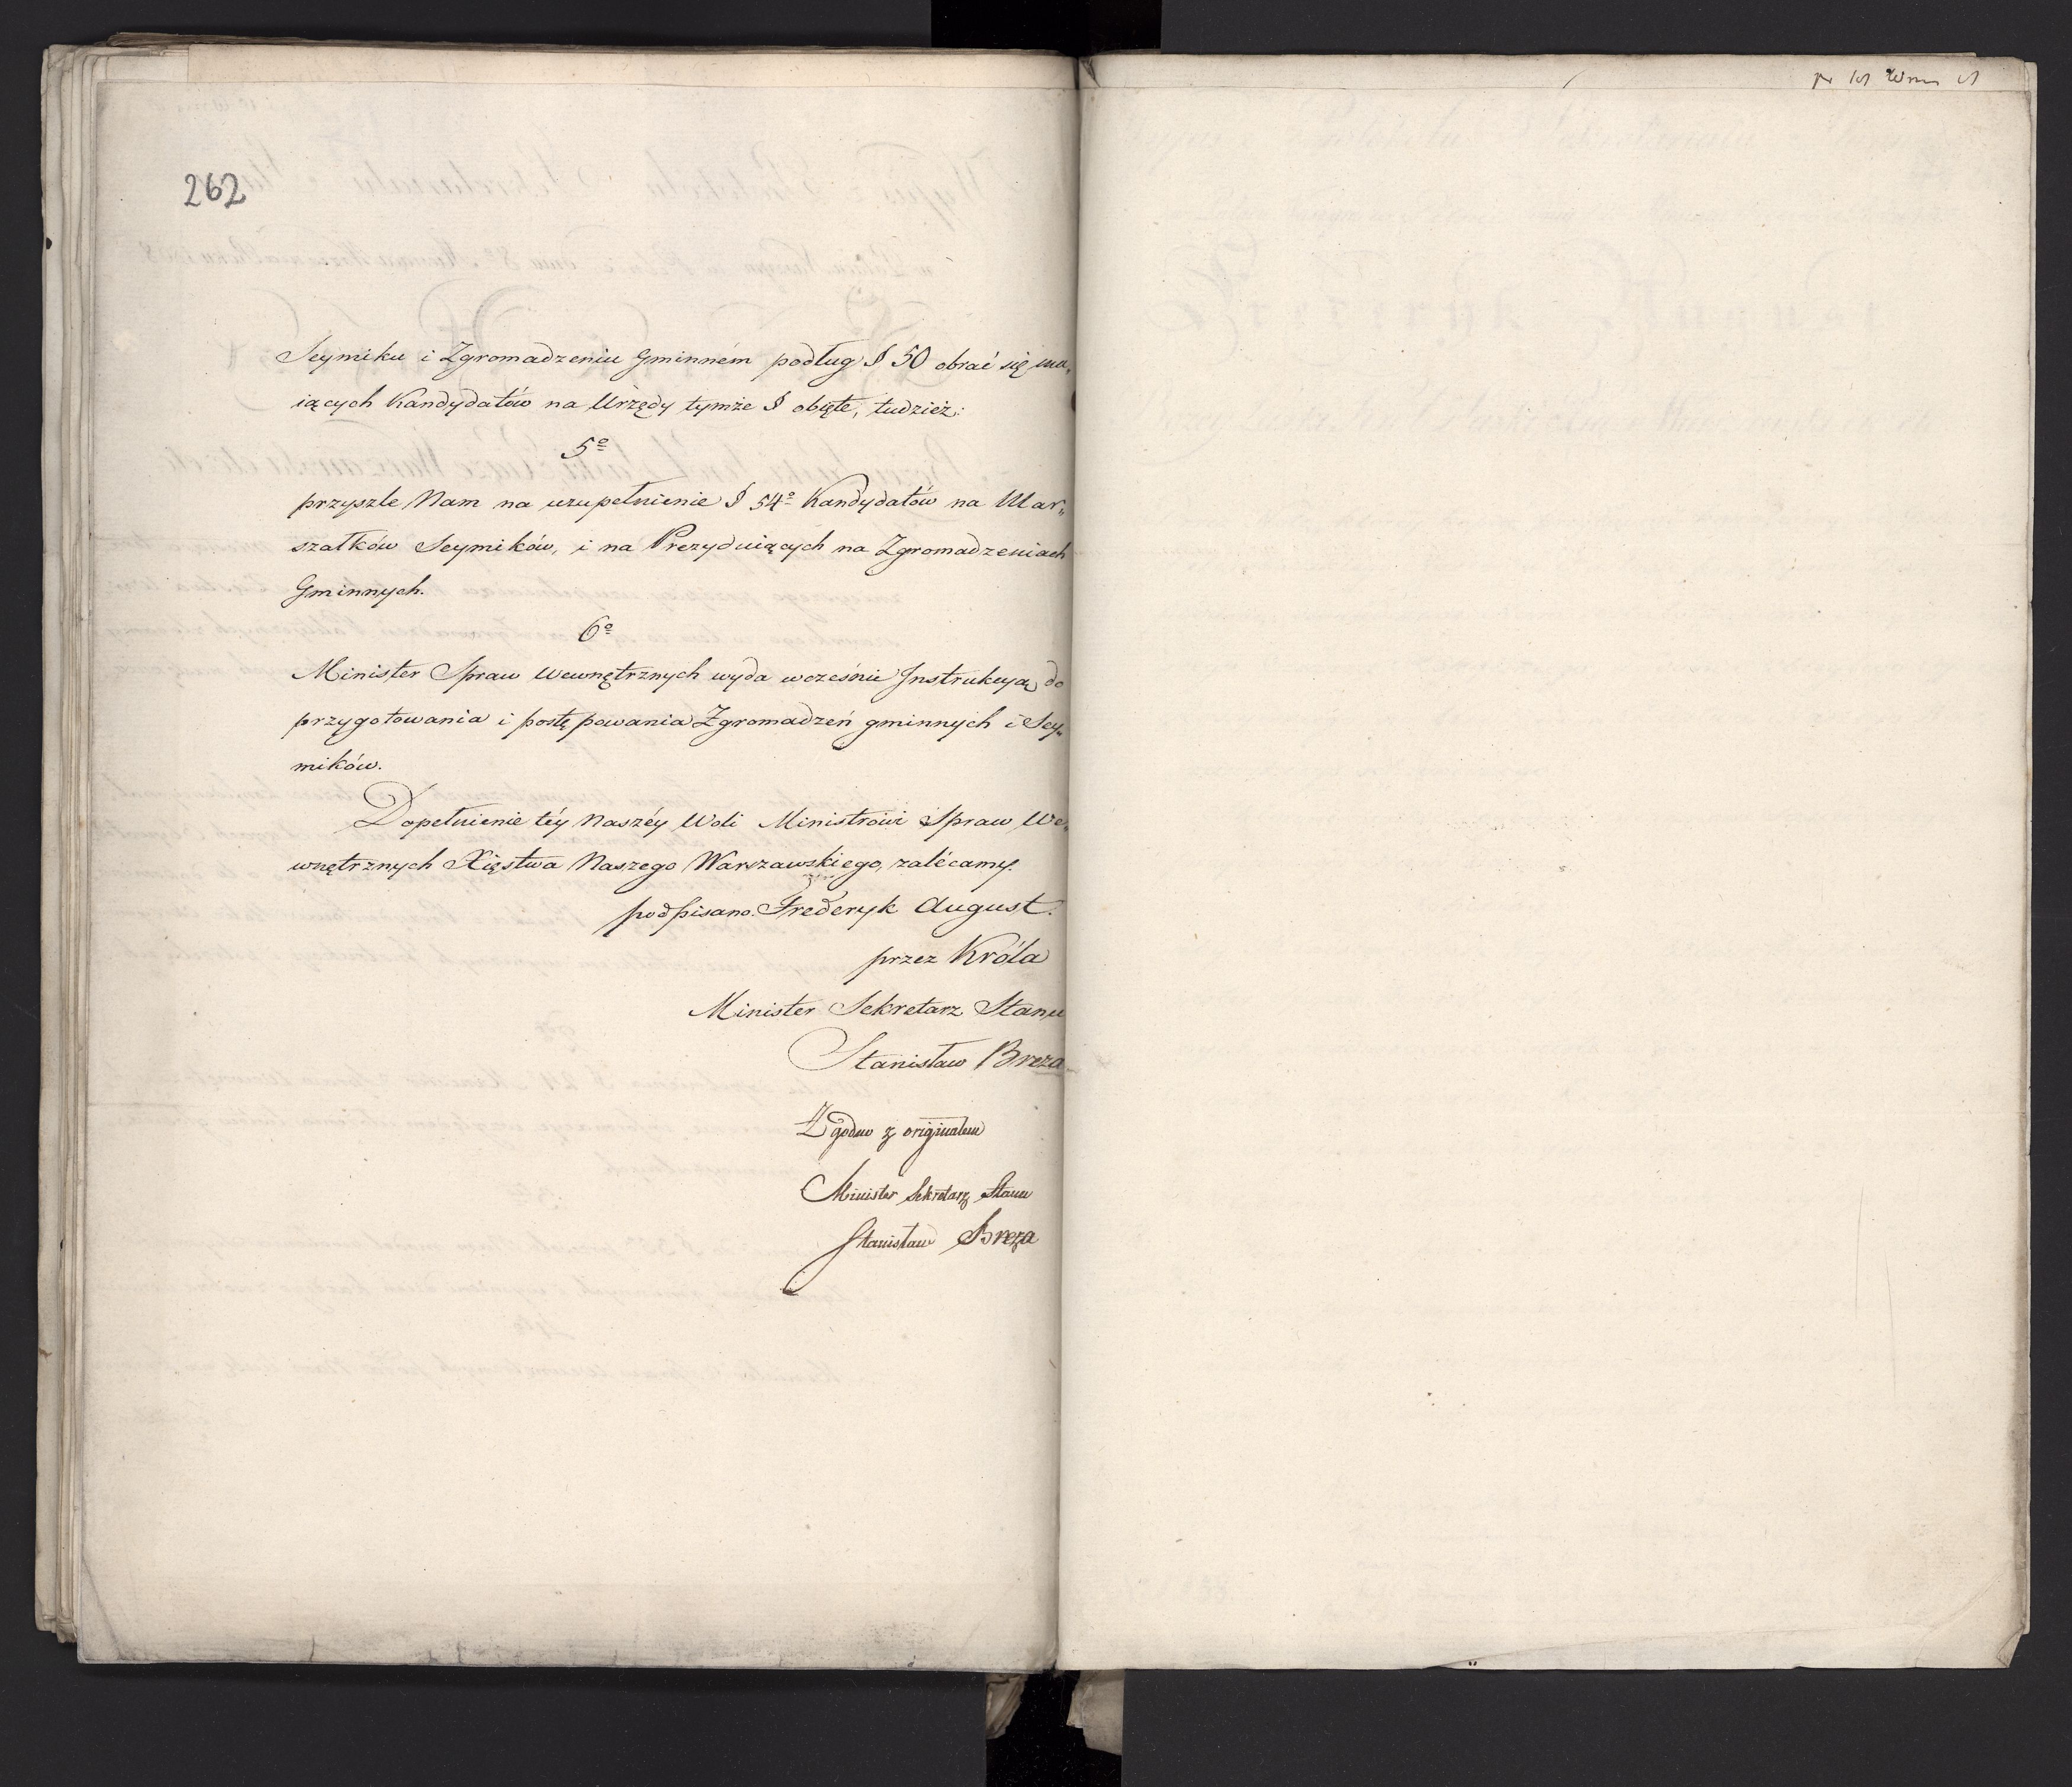 262
Seymiku i Zgromadzeniu Gminném podług § 50 obrać się ma„
iących Kandydatów na Urzędy tymże § obięte, tudzież:
5º
przyszle Nam na uzupełnienie § 54º Kandydatów na Mar„
szałków Seymików, i na Prezyduiących na Zgromadzeniach
Gminnych.
6º
Minister Spraw Wewnętrznych wyda wcześnie Instrukcyą do
przygotowania i postępowania Zgromadzeń gminnych i Sey„
mików.
Dopełnienie téy Naszéy Woli Ministrowi Spraw We„
wnętrznych Xięstwa Naszego Warszawskiego, zalécamy.
podpisano. Frederyk August.
przez Króla
Minister Sekretarz Stanu
Stanisław Breza
Zgodno z originałem
Minister Sekretarz Stanu
Stanisław Breza